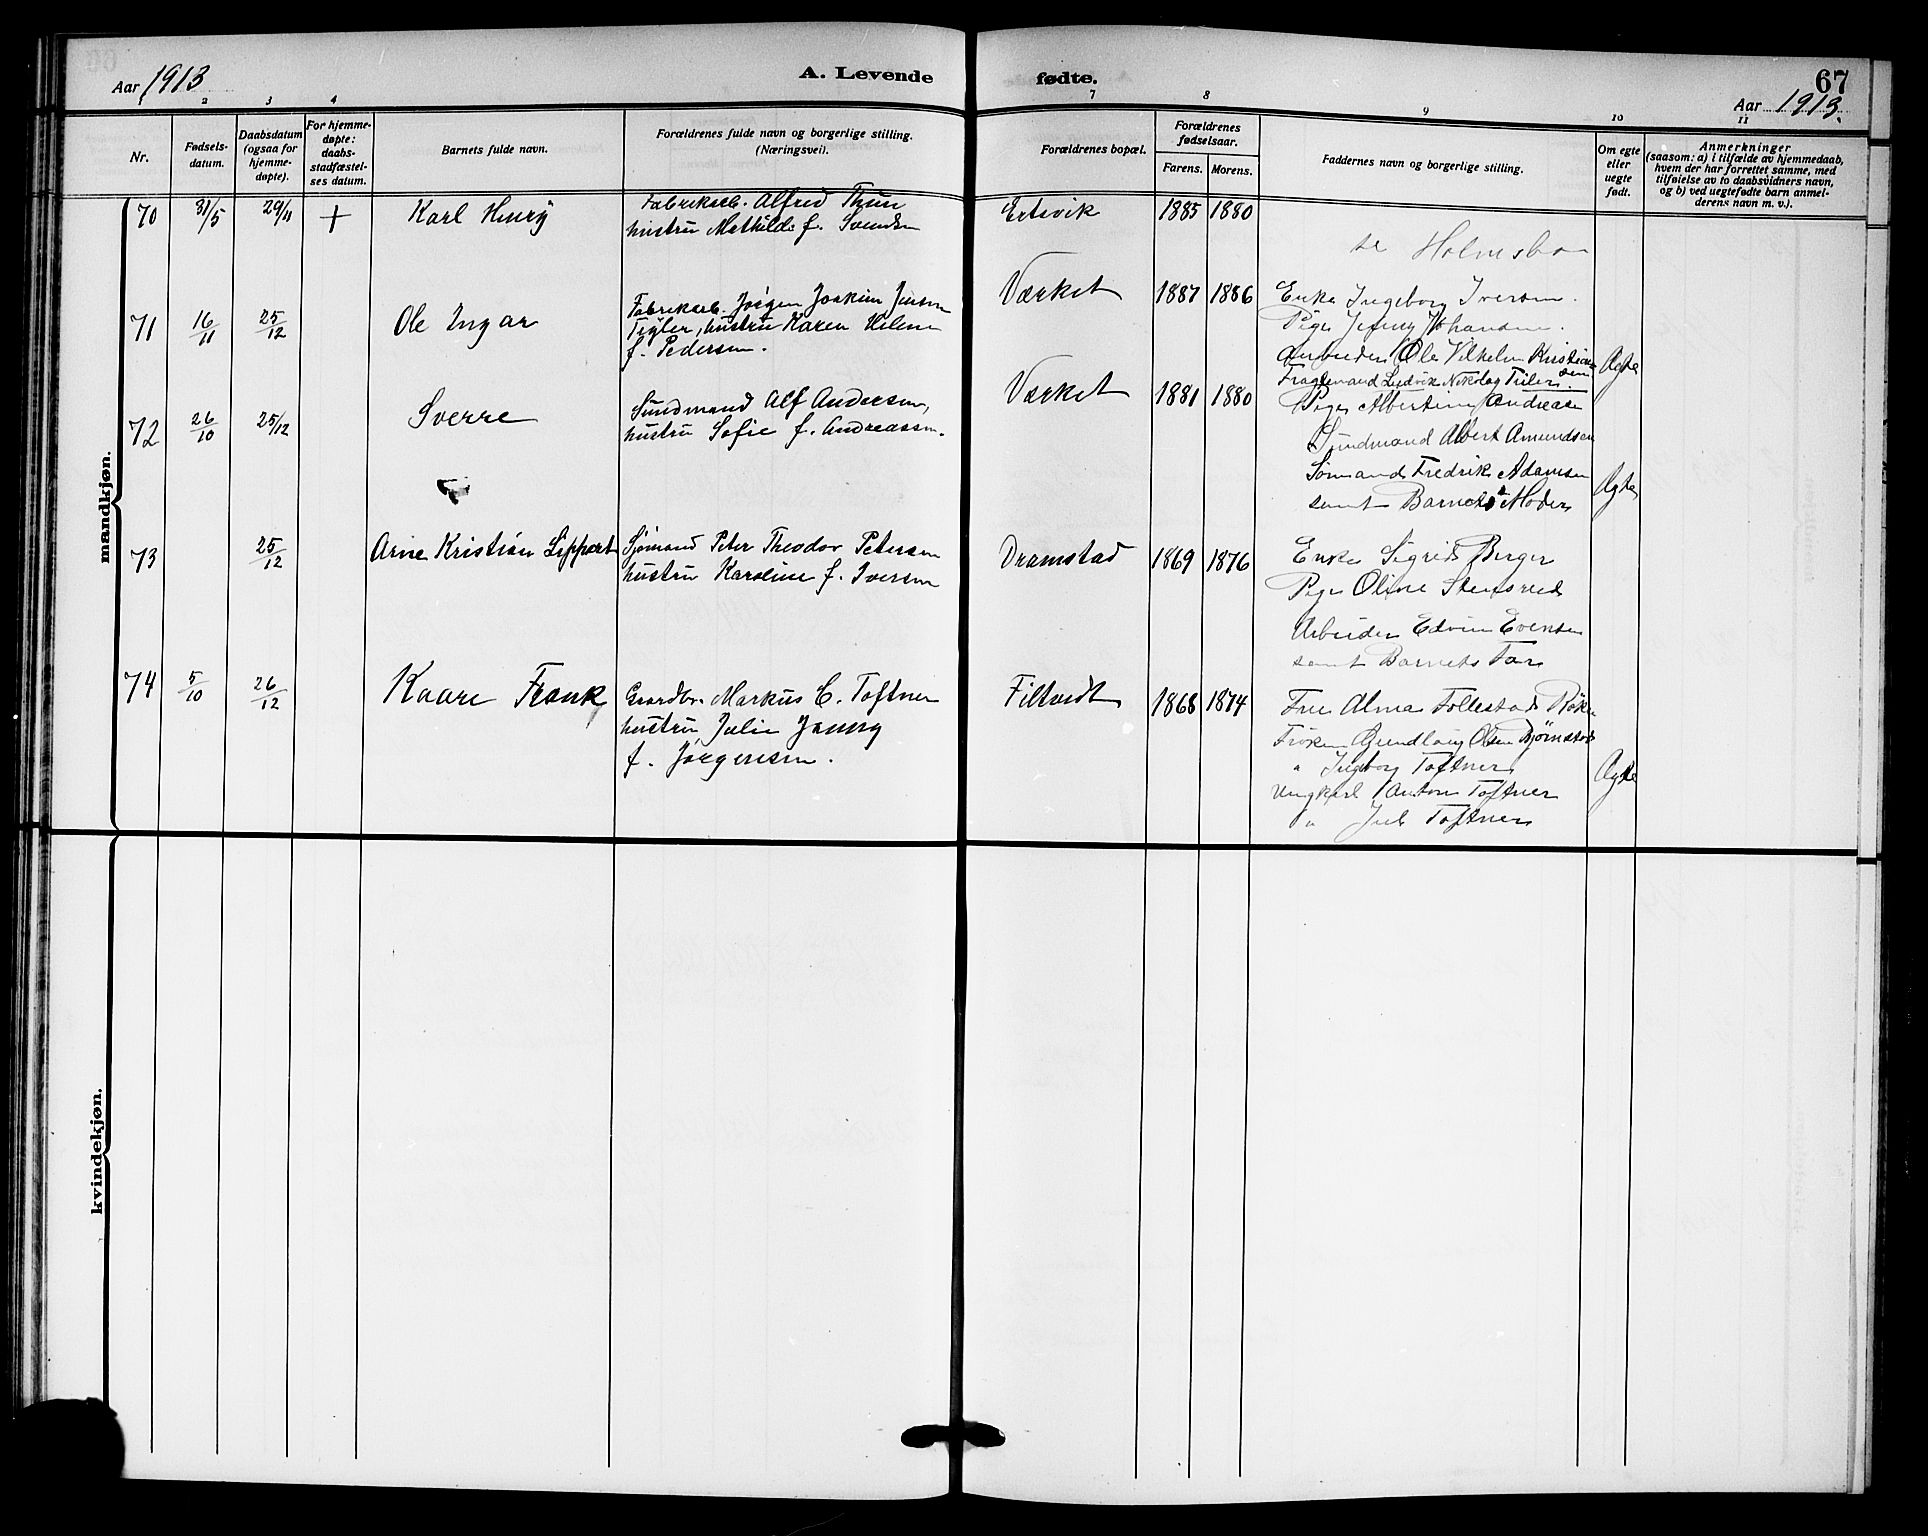 Aar 1913
A. Levende
fødte.
67
Aar 1913.
2 3 4 7 8 9 10 11
Nr.
Fødsels-
datum.
Daabsdatum
(ogsaa for
hjemme-
døpte).
For hjemme-
døpte:
daabs-
stadfæstel-
ses datum.
Barnets fulde navn.
Forældrenes fulde navn og borgerlige stilling.
(Næringsvei).
Forældrenes bopæl.
Forældrenes
fødselsaar.
Farens. Morens.
Faddernes navn og borgerlige stilling.
Om egte
eller
uegte
født.
Anmerkninger
(saasom: a) i tilfælde av hjemmedaab,
hvem der har forrettet samme, med
tilføielse av to daabsvidners navn,
og b) ved uegtefødte barn anmel-
derens navn m. v.).
mandkjøn.
70 31/5 29/11 + Karl Henry
Fabriksarb. Alfred Thun
hustru Mathilde f. Svendsen
Ertsvik 1885 1880
se Holmsbo
71 16/11 25/12 Ole Ingar
Fabriksarb. Jørgen Joakim Jensen
Tegler, hustru Karen Helene
f. Pedersen.
Værket 1887 1886
Enke Ingeborg Iversen.
Pige Jenny Johansen.
Arbeider Ole Vilhelm Kristian
sen
Fragtemand Ludvik Nikolay
Ægte
72 26/10 25/12 Sverre
Sundmand Alf Andersen,
hustru Sofie f. Andreassen.
Værket 1881 1880
Pige Albertine Andreasen
Sundmand Albert Amundsen
Sømand Fredrik Adamsen
samt Barnets Moder
Ægte
73 25/12 Arne Kristian Lippert
Sjømand Peter Theodor Petersen
hustru Karoline f. Iversen
Dramstad 1869 1876
Enke Sigrid Berger
Pige Oline Stensrud
Arbeider Edvin Evensen
samt Barnets Far
74 5/10 26/12 Kaare Frank
Gaardbr. Markus C. Toftner
hustru Julie Jenny
f. Jørgensen.
Filtvedt 1868 1874
Frue Alma Follestad Røken
Frøken Gundlaug Olsen Bjørnstad
" Ingeborg Toftner
Ungkarl Anton Toftner
" Juel Toftner
Ægte
kvindekjøn.